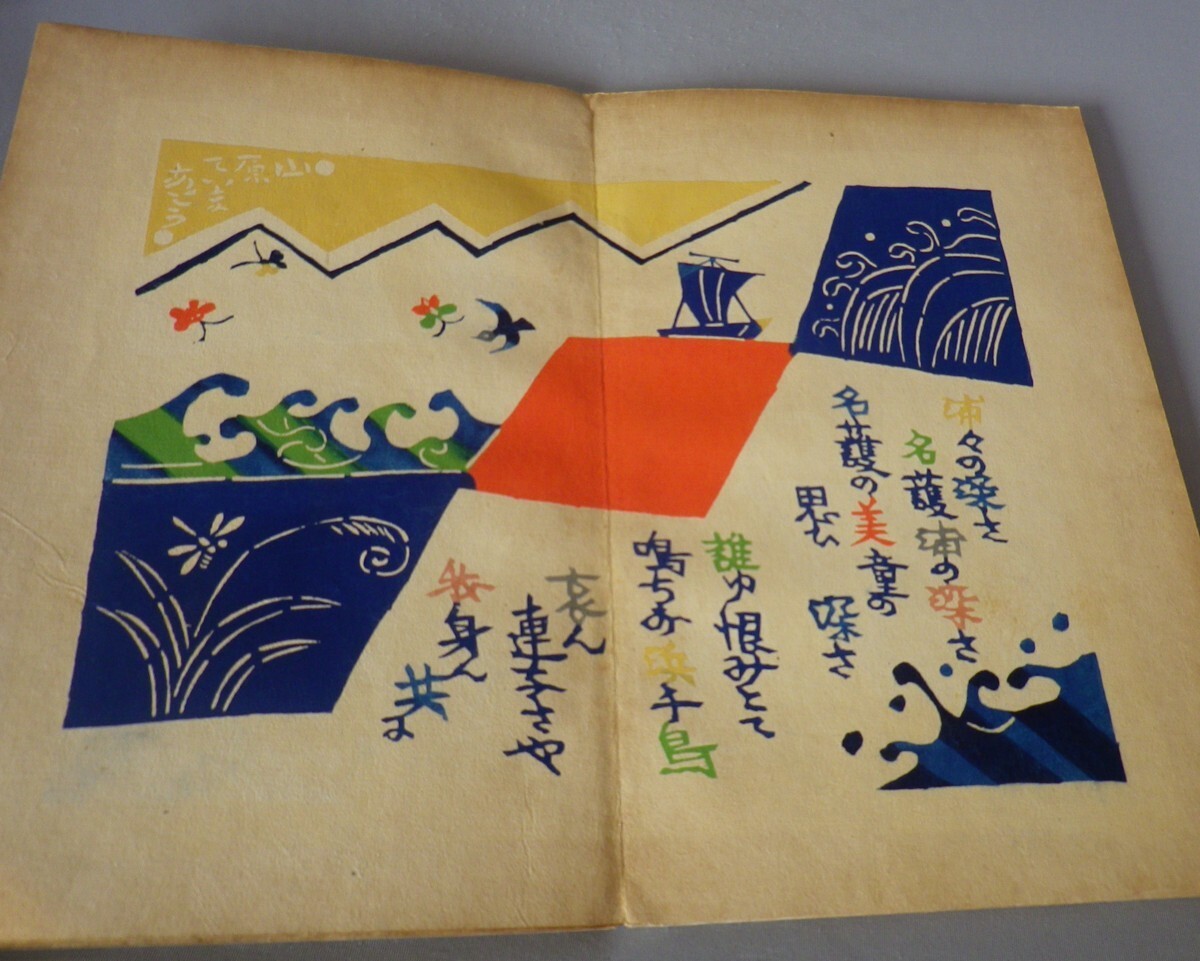 浦々の深さ
名護浦の深さ
名護の美童の
思ひ 深さ
誰ゆ恨みとて
鳴ちよお浜千鳥
哀ん
連なさや
我身ん
共に
山
原